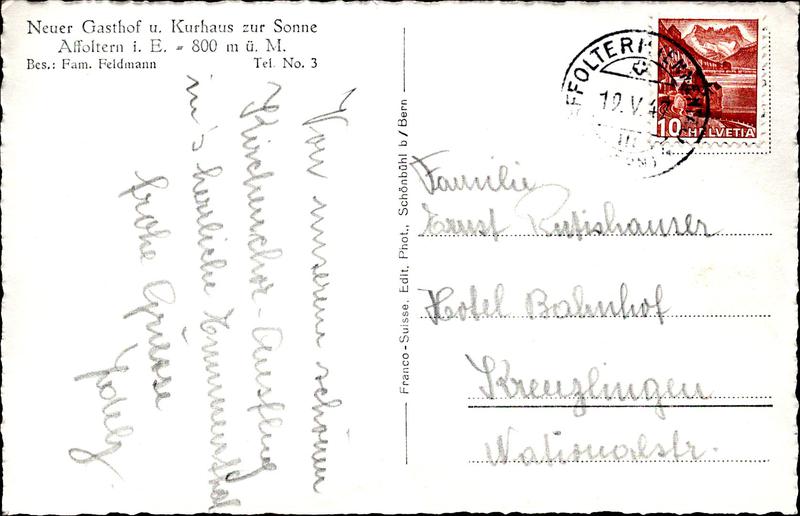 Neuer Gasthof u. Kurhaus zur Sonne
Affoltern i. E. - 800 m ü. M.
Bes.: Fam. Feldmann Tel. No. 3
Von unserem schönen
Kirchenchor-Ausflug
in's herrliche Emmenthal
frohe Grüsse
Franco-Suisse, Edit. Phot., Schönbühl b/Bern
AFFOLTERN
10 HELVETIA
Familie
Ernst Rutishauser
Hotel Bahnhof
Kreuzlingen
Nationalstr.